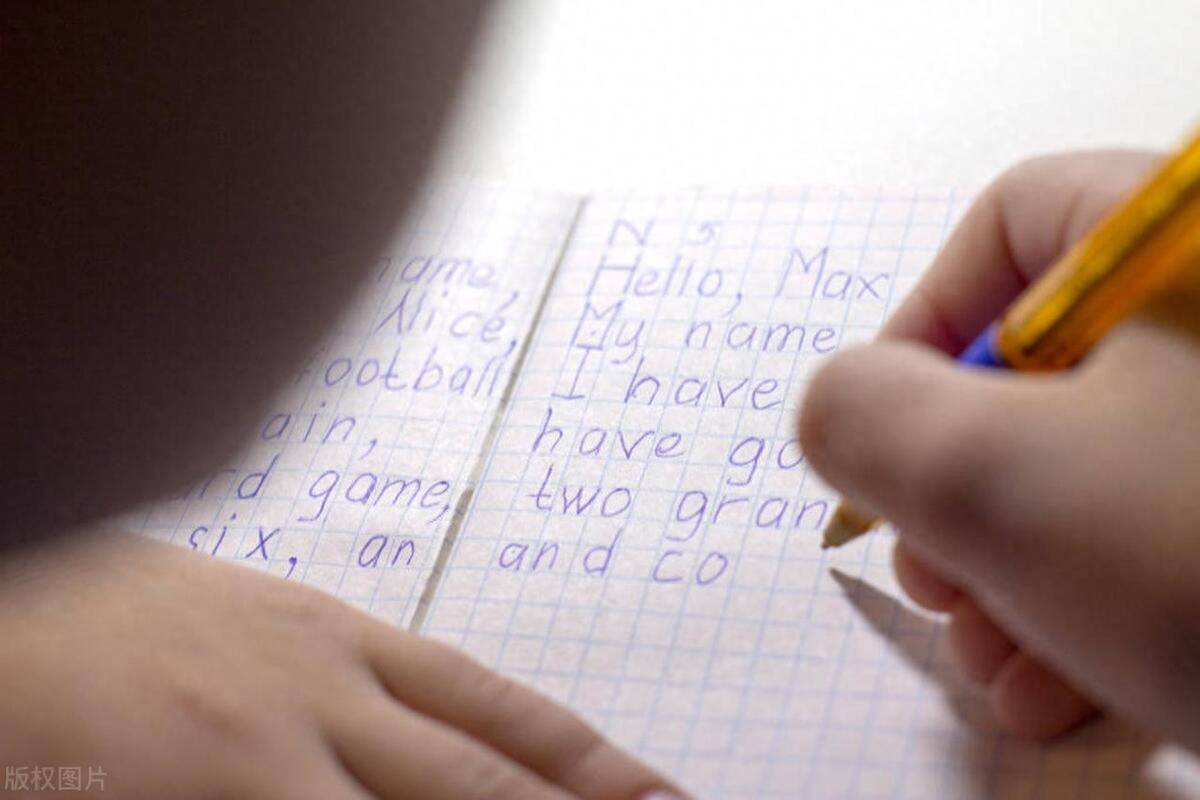 name,
Alice,
football
ain,
rd game,
six, an
N 5
Hello, Max
My name
I have
have go
two gran
and co
版权图片